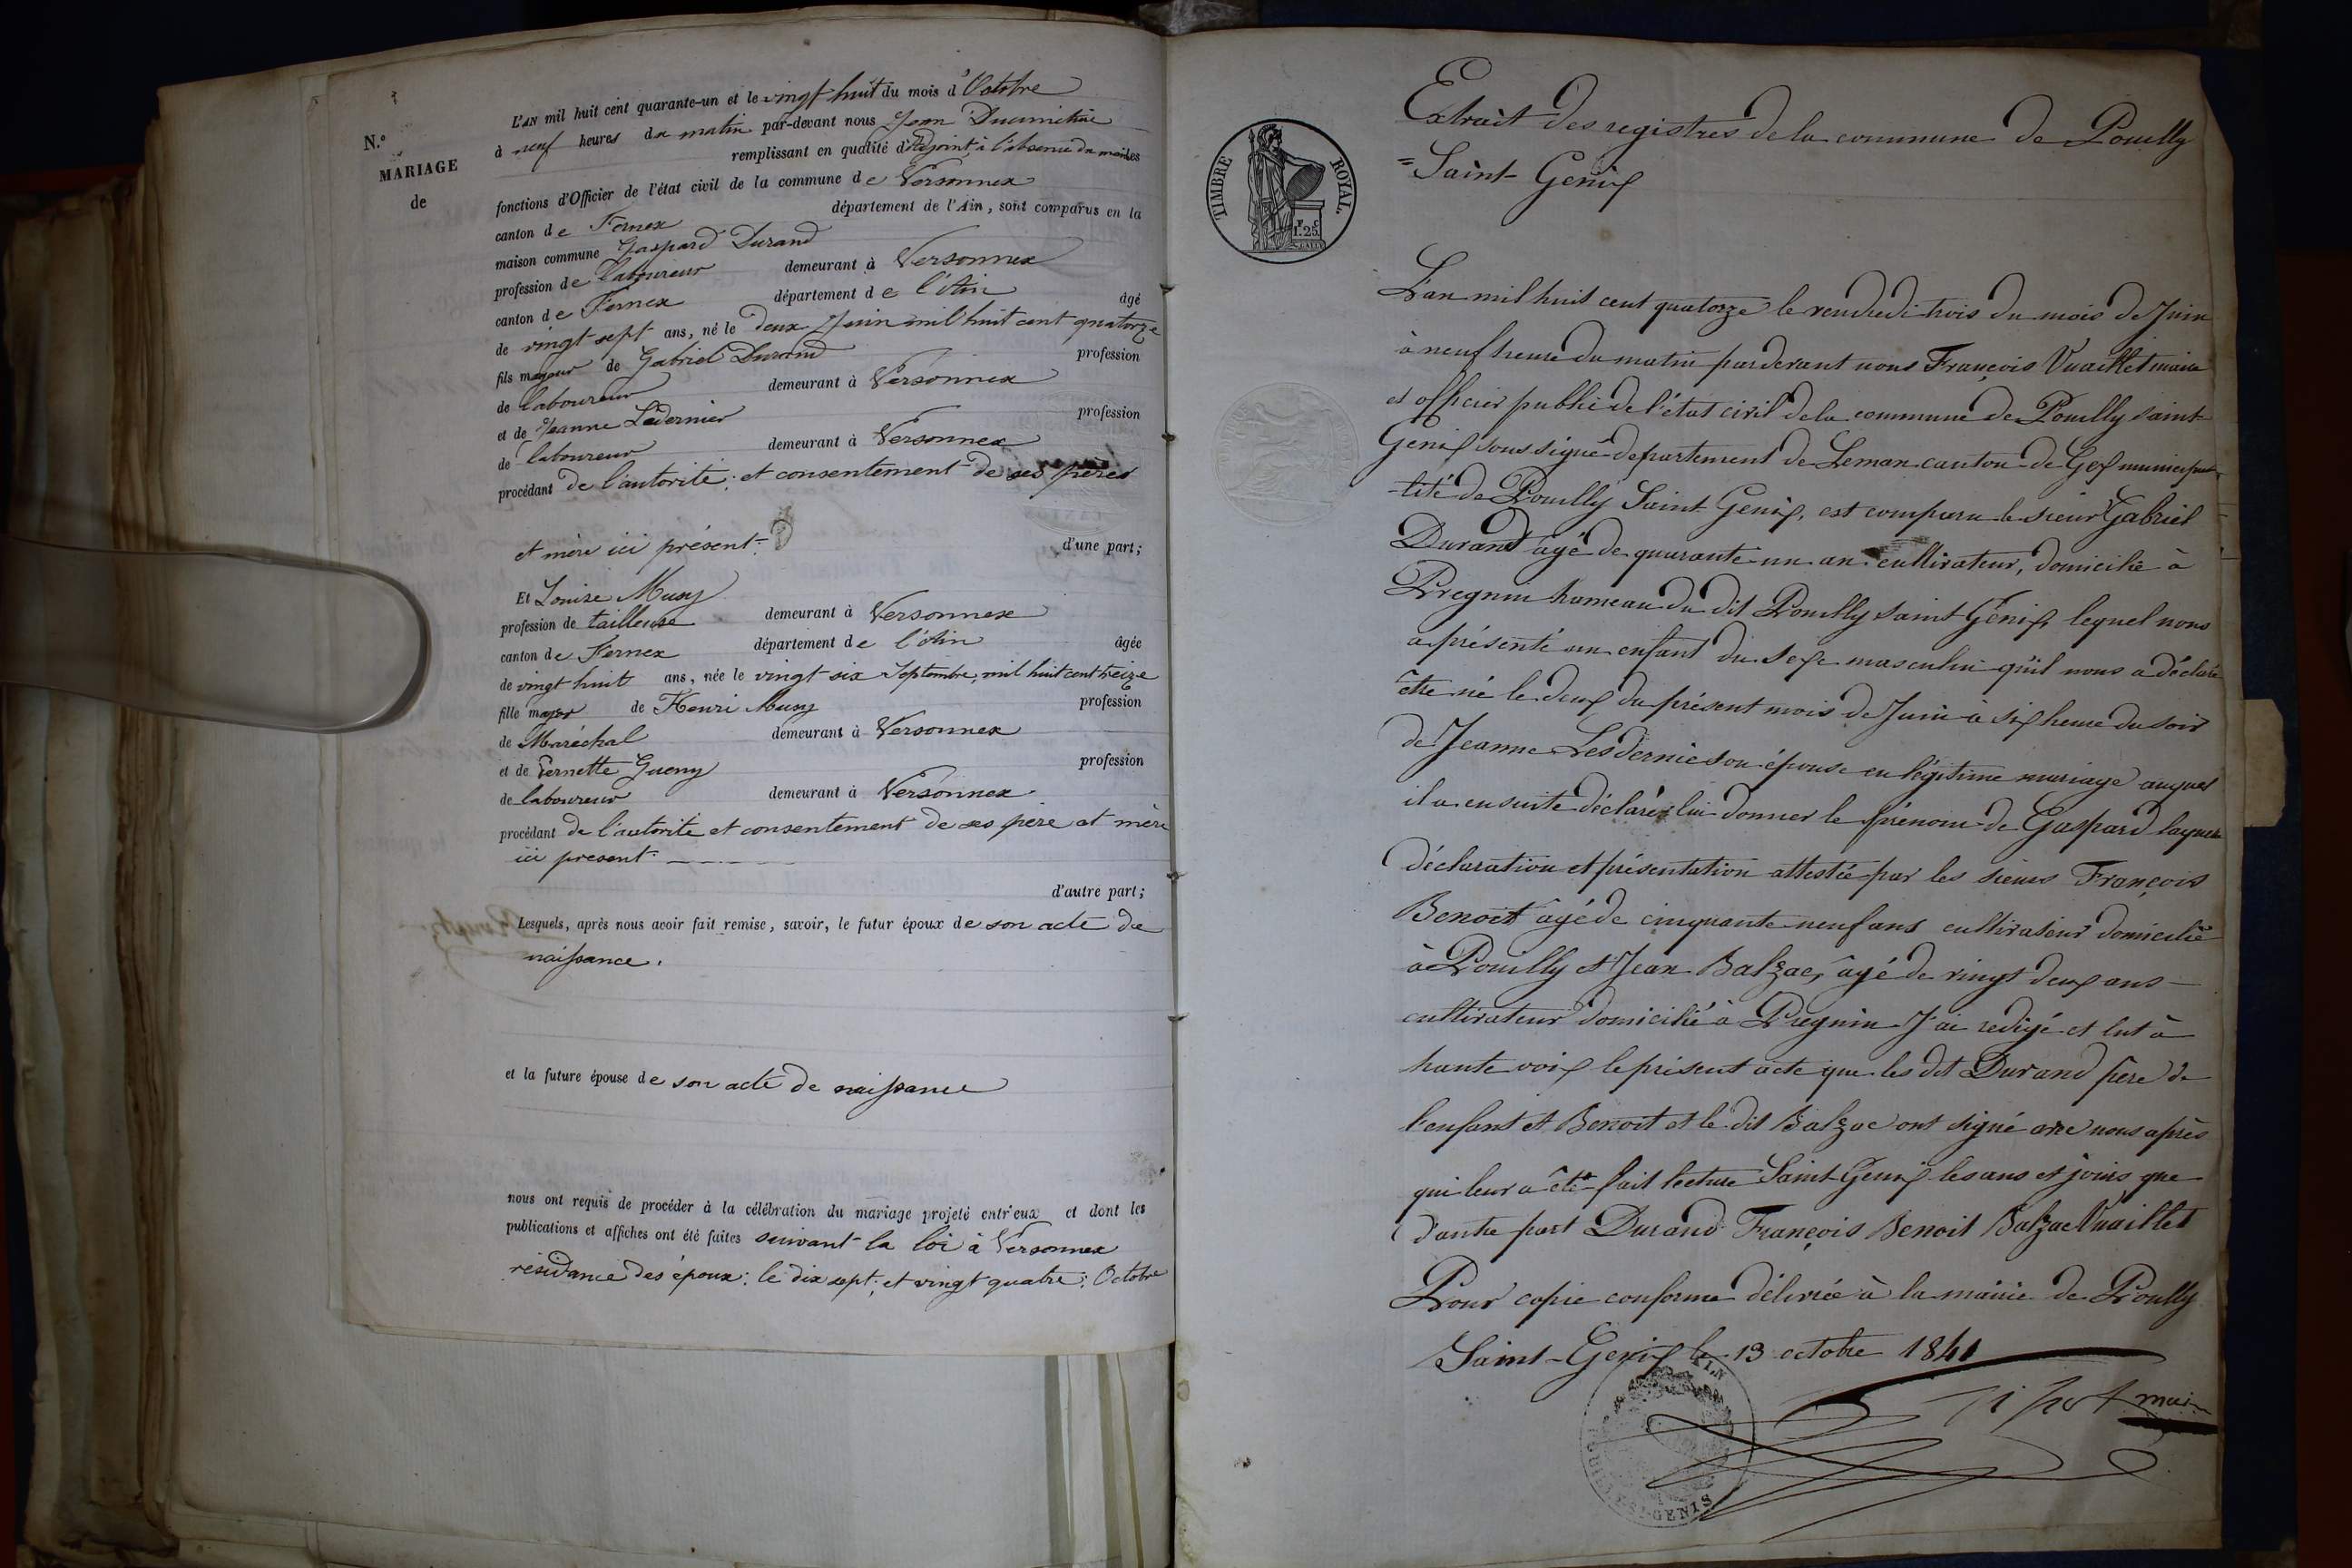 N.o
MARIAGE
de
L'AN mil huit cent quarante-un et le vingt huit du mois d'Octobre
à neuf heures du matin par-devant nous Jean
remplissant en qualité d'Adjoint à l'absence du maire les
fonctions d'Officier de l'état civil de la commune de Versonnex
canton de Fernex département de l'Ain, sont comparus en la
maison commune Gaspard Durand
profession de laboureur demeurant à Versonnex
canton de Fernex département de l'Ain âgé
de vingt sept ans, né le deux Juin mil huit cent quatorze
fils majeur de Gabriel Durand profession
de laboureur demeurant à Versonnex
et de Jeanne Ledernier profession
de laboureur demeurant à Versonnex
procédant de l'autorité; et consentement de ses pères
et mère ici présent. d'une part;
Et Louise Muny
profession de tailleuse demeurant à Versonnex
canton de Fernex département de l'Ain âgée
de vingt huit ans, née le vingt six Septembre, mil huit cent treize
fille major de Henri Muny profession
de Maréchal demeurant à Versonnex
et de Pernette Gueny profession
de laboureur demeurant à Versonnex
procédant de l'autorité et consentement de ses père et mère
ici present.
d'autre part;
Lesquels, après nous avoir fait remise, savoir, le futur époux de son acte de
naissance.
et la future épouse de son acte de naissance
nous ont requis de procéder à la célébration du mariage projeté entr'eux et dont les
publications et affiches ont été faites suivant la loi à Versonnex
résidance des époux: le dix sept; et vingt quatre: Octobre
TIMBRE ROYAL
1F.25c.
Extrait des registres de la commune de Pouilly
=Saint-Genix
L'an mil huit cent quatorze le vendredi trois du mois de Juin
à neuf heure du matin pardevant nous François Vuaillet maire
et officier public de l'état civil de la commune de Pouilly saint
Genix soussigné departement de Leman canton de Gex municipa
-lité de Pouilly Saint Genix, est comparu le sieur Gabriel
Durand âgé de quarante un an cultivateur, domicilié à
Pregnin hameau du dit Pouilly saint Genix, lequel nous
a présenté un enfant du sexe masculin qu'il nous a déclaré
être né le deux du présent mois de Juin à six heure du soir
de Jeanne Lesdernie son épouse en légitime mariage auquel
il a ensuite déclaré lui donner le prénom de Gaspard laquelle
déclaration et présentation attestée par les sieurs François
Benoit âgé de cinquante neuf ans cultivateur domicilié
à Pouilly et Jean Balzac, âgé de vingt deux ans
cultivateur domicilié à Pregnin J'ai redigé et lut à
haute voix le présent acte que les dit Durand père de
l'enfant et Benoit et le dit Balzac ont signé avec nous après
qui leur a été fait lecture Saint Genix les ans et jours que
d'autre part Durand François Benoit Balzac Vuaillet
Pour copie conforme délivrée à la mairie de Pouilly
Saint-Genix le 13 octobre 1841
maire